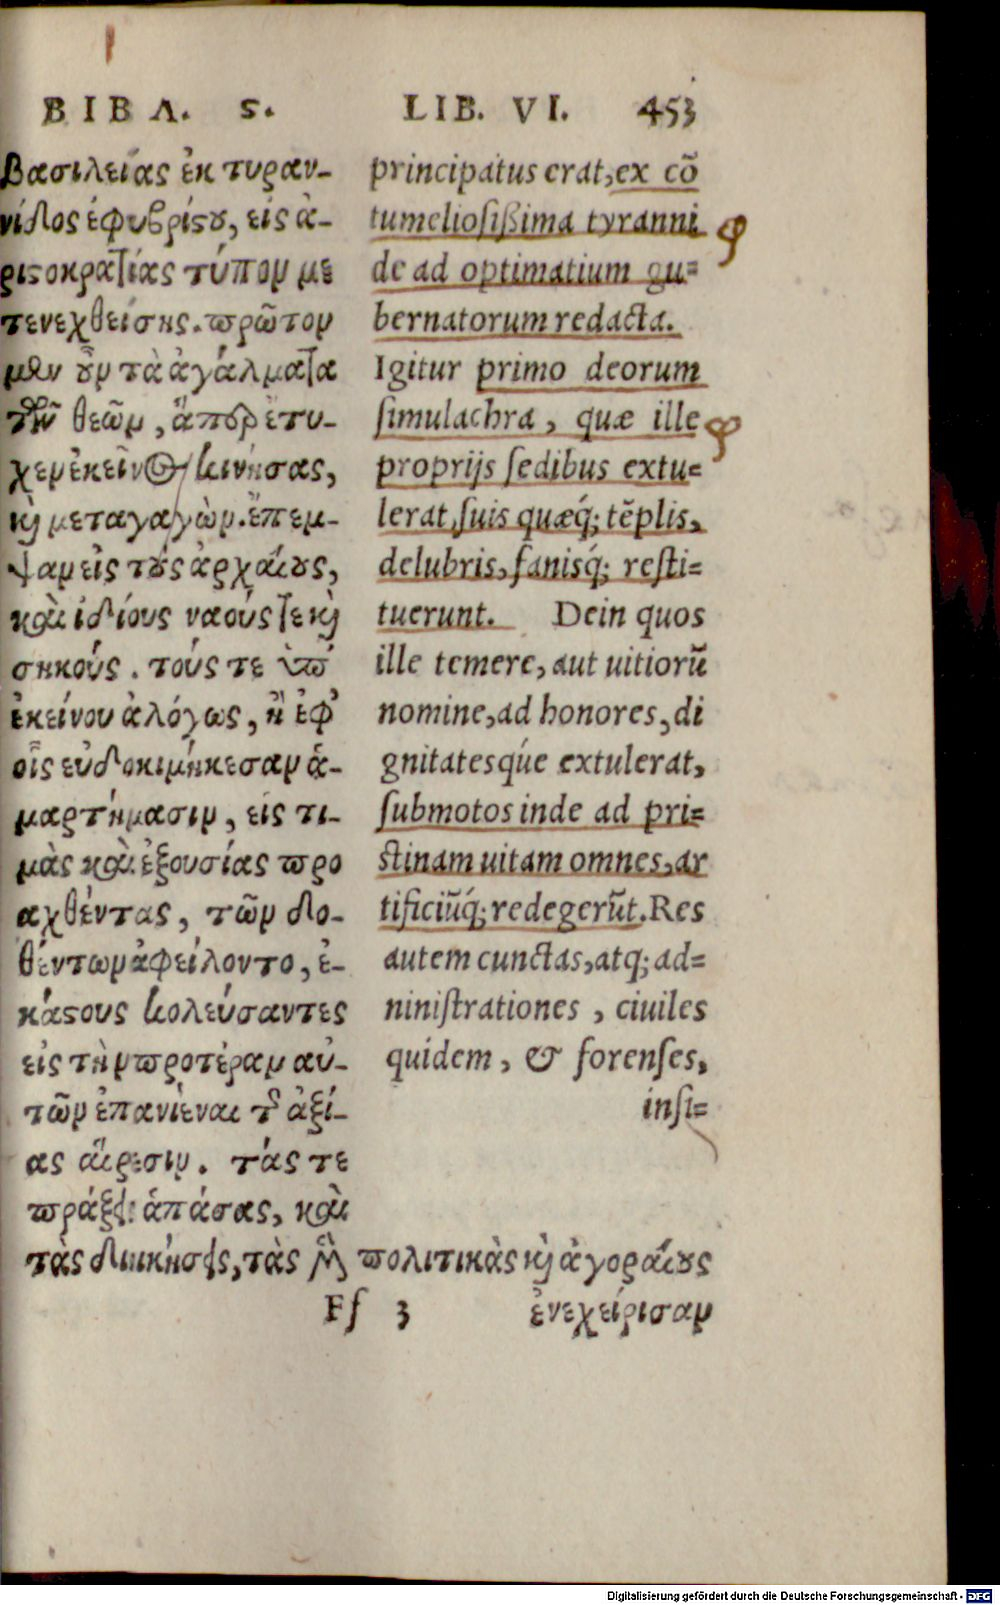 ΒΙΒΛ. ϛ.
βασιλείας ἐκ τυραν-
νίδος ἐφυβρίστου, εἰς ἀ-
ριστοκρατίας τύπον με
τενεχθείσης. πρῶτον
μὲν οὖν τὰ ἀγάλματα
τῶν θεῶν, ἅπερ ἔτυ-
χεν ἐκεῖνος κινήσας,
καὶ μεταγαγὼν. ἔπεμ-
ψαν εἰς τοὺς ἀρχαίους,
καὶ ἰδίους ναούς τε καὶ
σηκούς. τούς τε ὑπ'
ἐκείνου ἀλόγως, ἢ ἐφ'
οἷς εὐδοκιμήκεσαν ἁ-
μαρτήμασιν, εἰς τι-
μὰς καὶ ἐξουσίας προ
αχθέντας, τῶν δο-
θέντων ἀφείλοντο, ἑ-
κάστους κελεύσαντες
εἰς τὴν προτέραν αὐ-
τῶν ἐπανιέναι τοῦ ἀξί-
ας αἵρεσιν. τάς τε
πράξεις ἁπάσας, καὶ
τὰς διοικήσεις, τὰς μὲν πολιτικὰς καὶ ἀγοραίους
LIB. VI. 453
principatus erat, ex cō
tumeliosißima tyranni
de ad optimatium gu=
bernatorum redacta.
Igitur primo deorum
simulachra, quæ ille
proprijs sedibus extu=
lerat, suis quæq́; tēplis,
delubris, fanisq́; resti=
tuerunt. Dein quos
ille temere, aut uitiorū
nomine, ad honores, di
gnitatesq́ue extulerat,
submotos inde ad pri=
stinam uitam omnes, ar
tificiūq́; redegerūt. Res
autem cunctas, atq; ad=
ninistrationes, ciuiles
quidem, & forenses,
insi=
Ff 3 ἐνεχείρισαν
Digitalisierung gefördert durch die Deutsche Forschungsgemeinschaft - DFG